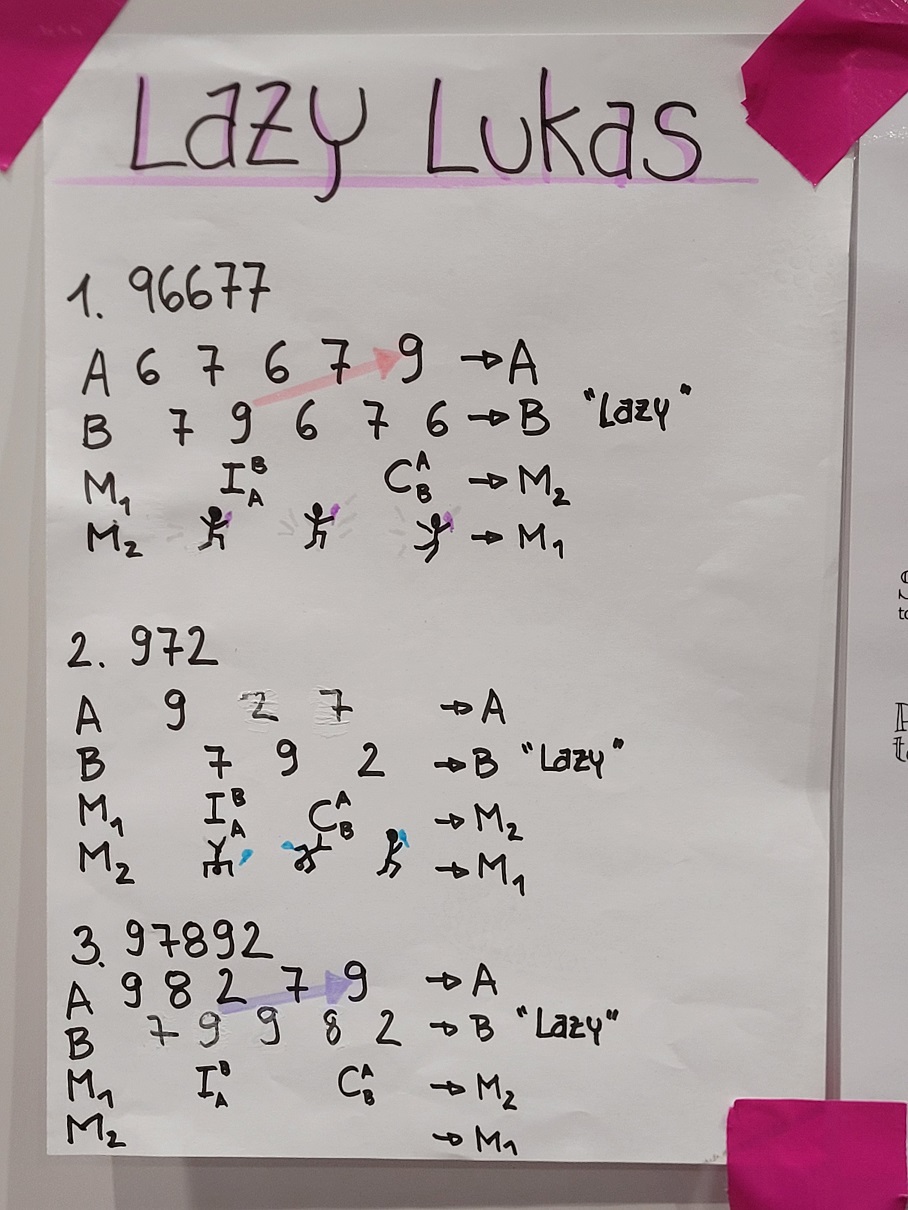 Lazy Lukas
1. 96677
A 6 7 6 7 9 → A
B 7 9 6 7 6 → B "Lazy"
M₁ I ᴮ A C ᴬ B → M₂
M₂ → M₁
2. 972
A 9 2 7 → A
B 7 9 2 → B "Lazy"
M₁ I ᴮ A C ᴬ B → M₂
M₂ → M₁
3. 97892
A 9 8 2 7 9 → A
B 7 9 9 8 2 → B "Lazy"
M₁ I ᴮ A C ᴬ B → M₂
M₂ → M₁